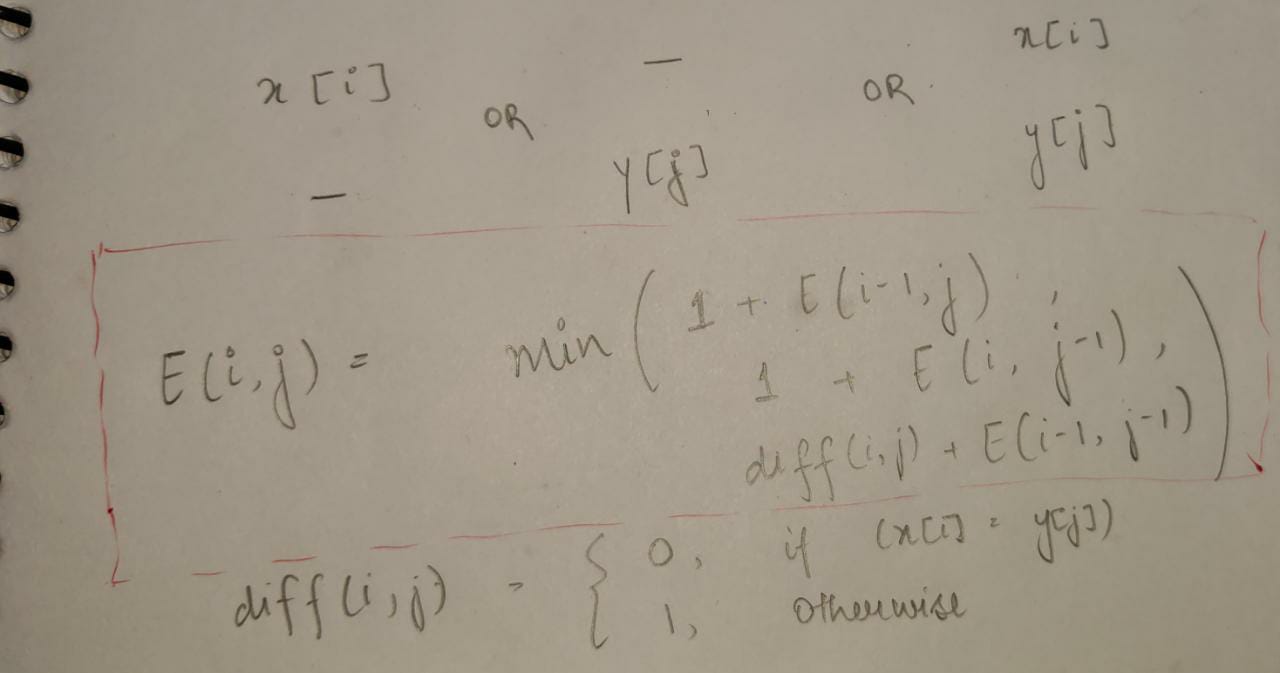 x[i] OR — OR x[i]
— y[j] y[j]
E(i,j) = min ( 1 + E(i-1, j) ,
1 + E(i, j-1) ,
diff(i,j) + E(i-1, j-1) )
diff(i,j) = { 0, if (x[i] = y[j])
1, otherwise